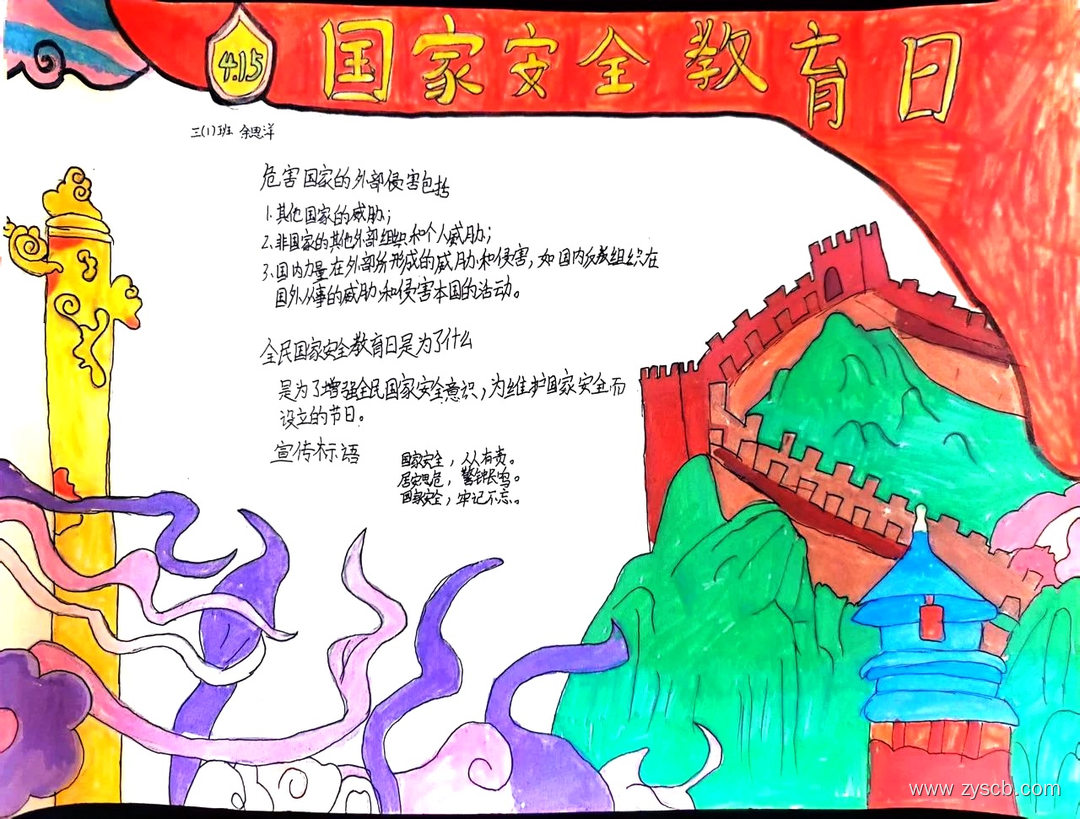 4.15
国家安全教育日
三(1)班 余思洋
危害国家的外部侵害包括
1.其他国家的威胁;
2.非国家的其他外部组织和个人威胁;
3.国内力量在外部所形成的威胁和侵害,如国内反叛组织在
国外从事的威胁和侵害本国的活动。
全民国家安全教育日是为了什么
是为了增强全民国家安全意识,为维护国家安全而
设立的节日。
宣传标语
国家安全,人人有责。
居安思危,警钟长鸣。
国家安全,牢记不忘。
www.zyscb.com